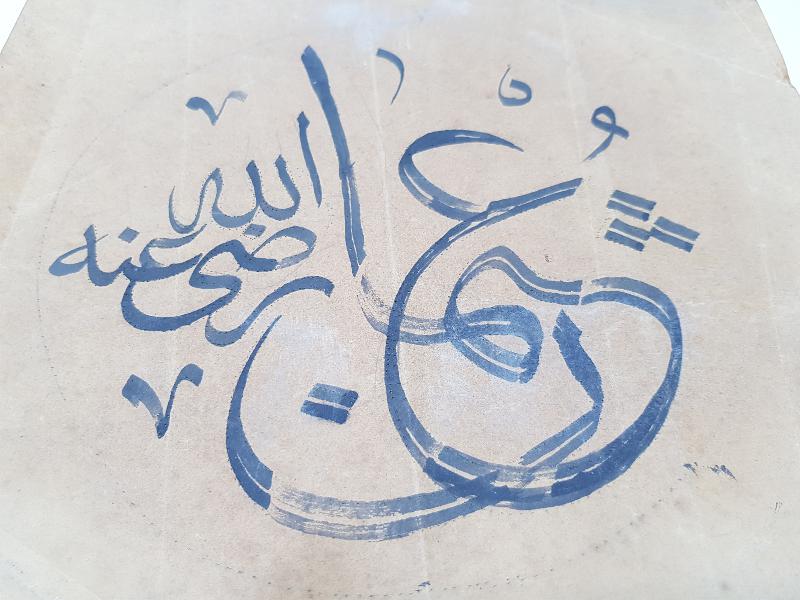 عُثمان رضى الله عنه